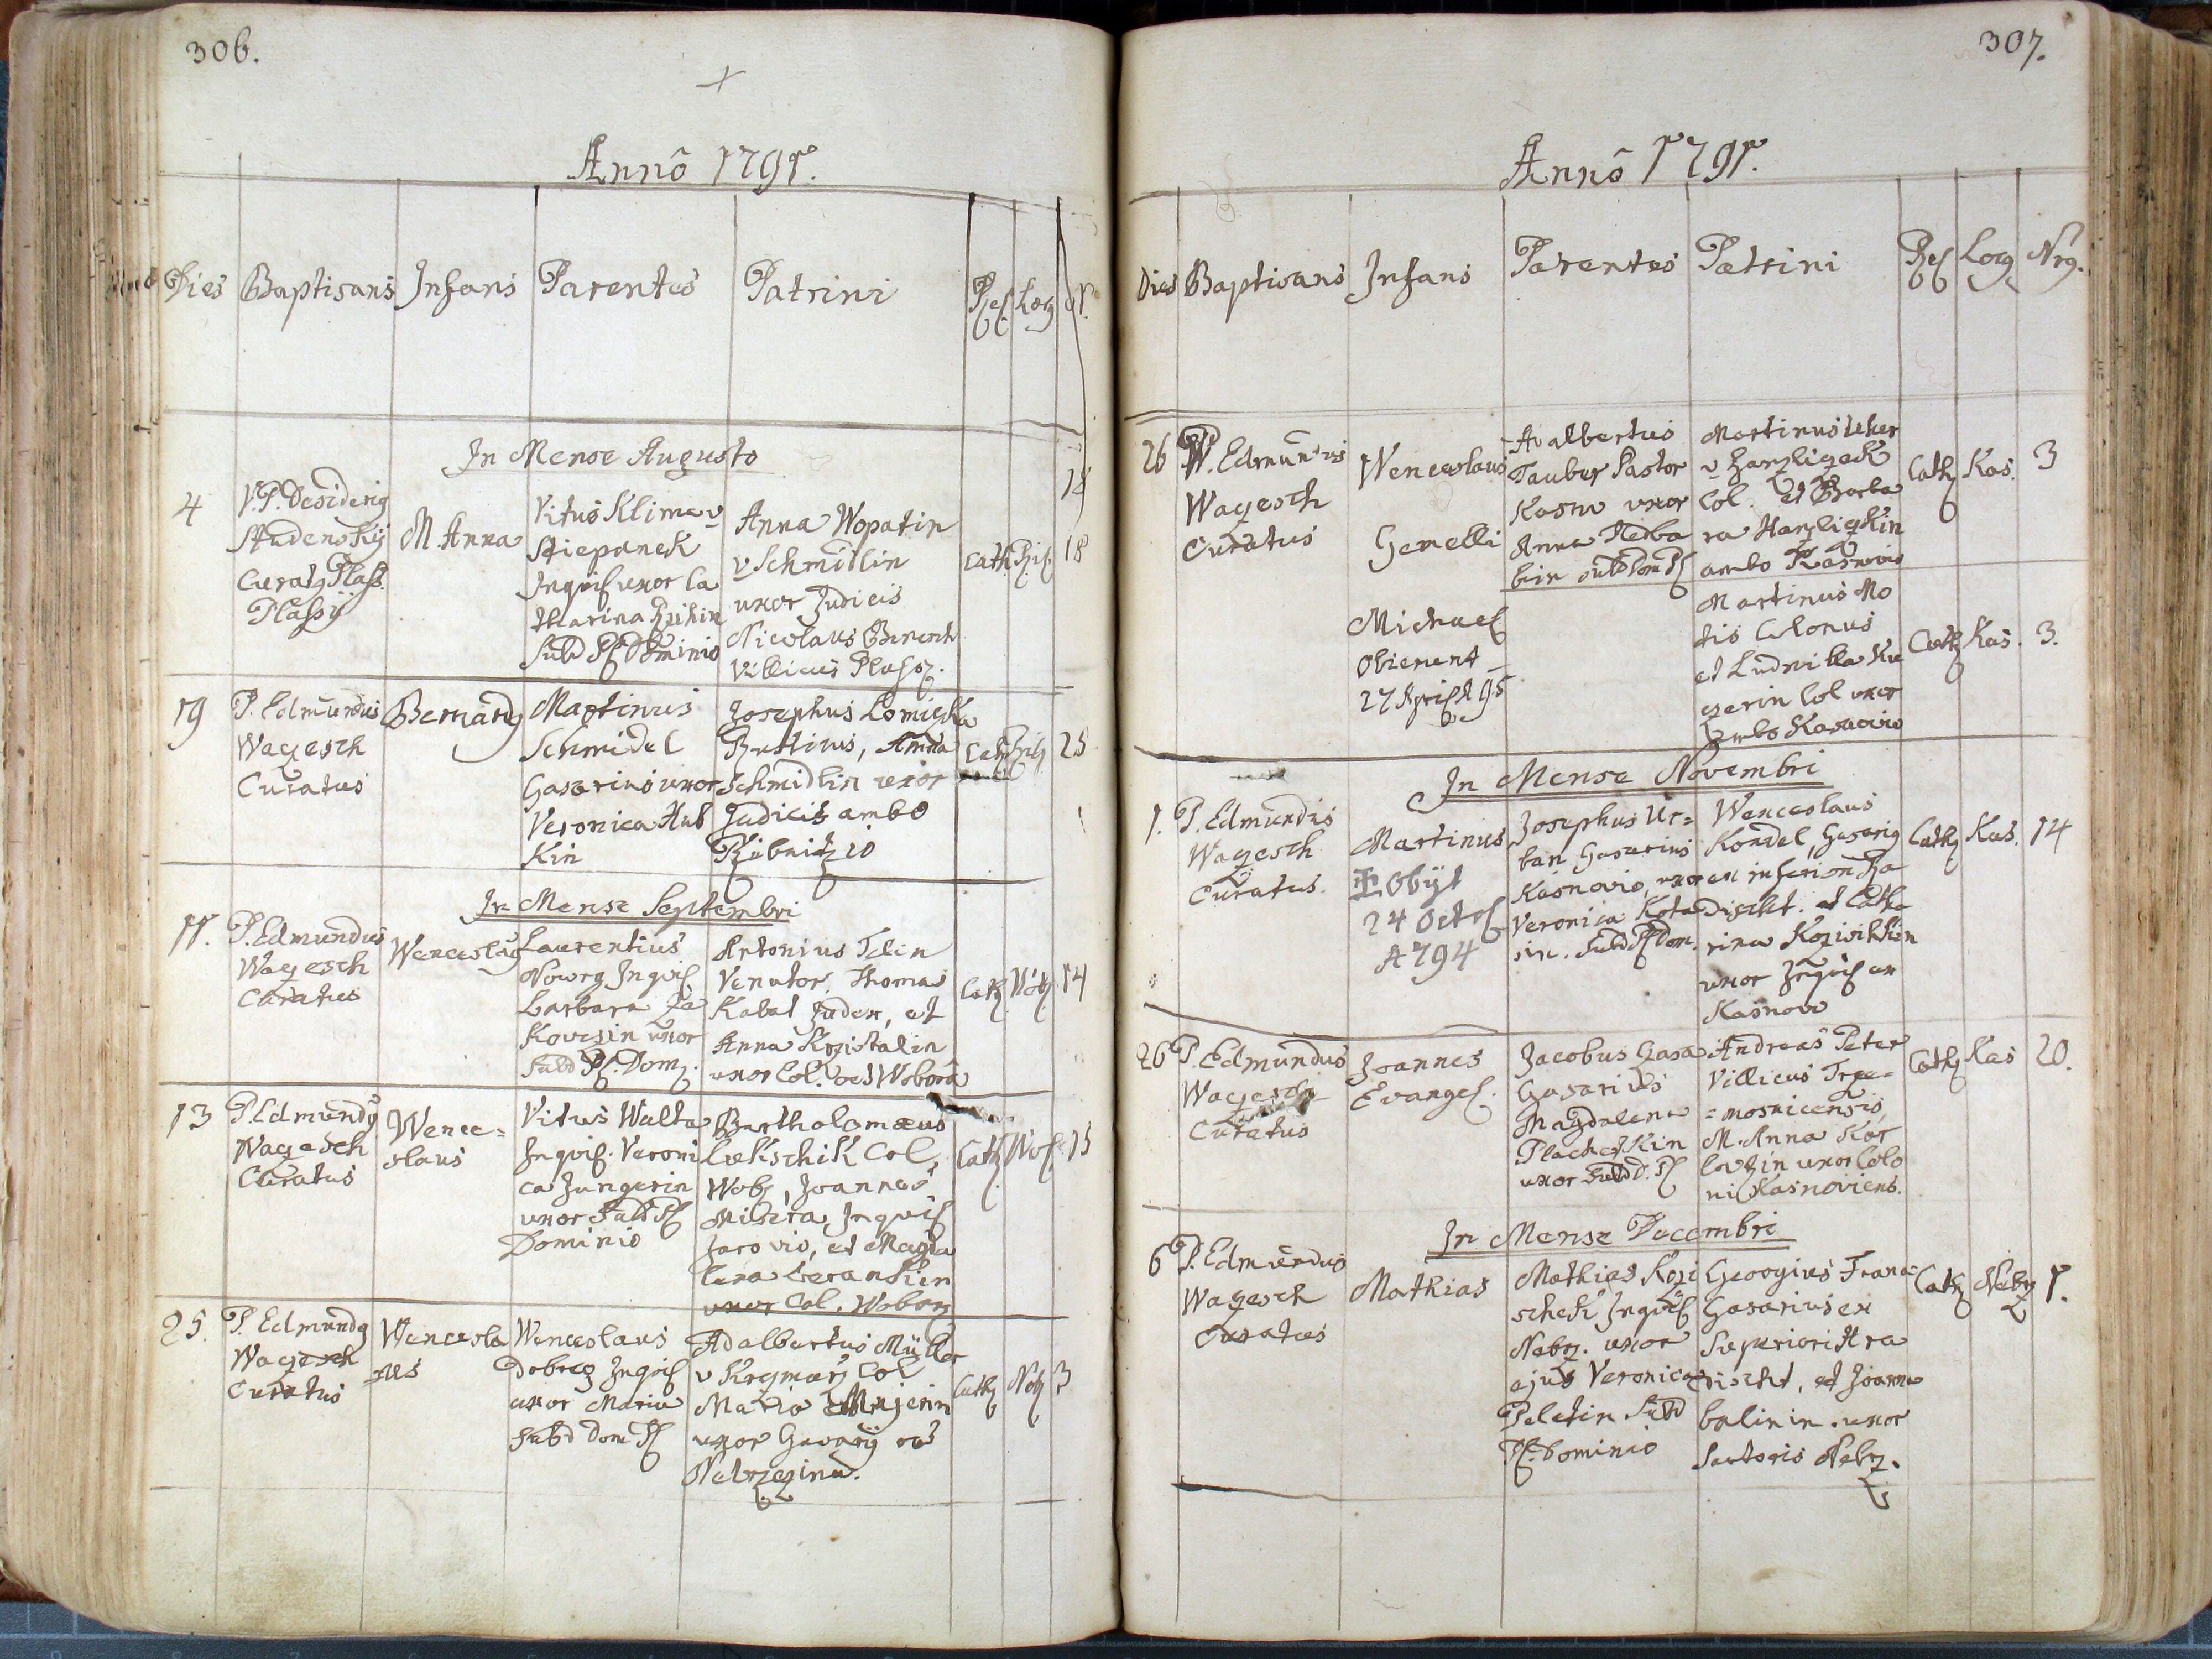 306.
Annô 1791.
Dies Baptisans Infans Parentes Patrini Rel Locg
In Mense Augusto
4
V. P. Desiderig
Studenskÿ
Curatg Plass.
Plassÿ
M. Anna
Vitus Klima v
Stiepanek
Inqvil uxor Ca
tharina
Subd Pl Dominio
Anna Wopatin
v Schmidlin
uxor Judicis
Nicolaus Benesch
Villicus Plass.
Cath
18
19
P. Edmundus
Wagesch
Curatus
Bernardg
Martinus
Schmidel
Gasarius uxor
Veronica Hub
Kin
Josephus Lomiczka
Rusticus, Anna
Schmidlin uxor
Judicis ambo
Ribnitzio
Cath
25
In Mense Septembri
11.
P. Edmundus
Wagesch
Curatus
Wenceslaus
Laurentius
Nowrg Inqvil
Barbara Ja
Kowesin uxor
Subd Pl. Dom.
Antonius Tein
Venator, Thomas
Kabat Judex, et
Anna
uxor Col. od Wobora
Cath
14
13
P. Edmundg
Wagesch
Curatus
Wence=
slaus
Vitus Walta
Inqvil. Veroni
ca Jungerin
uxor Subd Pl
Dominio
Bartholomæus
Lekschik Col,
Wob, Joannes
Misera, Inqvil
Jarovio, et Magda
lena
uxor Col. Wobor
Cath
15
25.
P. Edmundg
Wagesch
Curatus
Wencesla
us
Wenceslaus
Inqvil
uxor Maria
Subd Dom Pl
Adalbertus Müller
v Krzmarz Col
Maria Majerin
uxor Gasarÿ
Nebrzezina.
Cath
3
307.
Annô 1791.
Dies Baptisans Infans Parentes Patrini Rel Locg Nrg.
26
P. Edmundus
Wagesch
Curatus
Wenceslaus
Gemelli
Michael
Obierunt
27 April 795
Adalbertus
Tauber Pastor
Kasn uxor
Anna Nedba
lin subd Dom Pl
Martinus Uher
v Harzliczek
Col. et Barba
ra Harzliczkin
ambo Kasnovio
Cath Kas. 3
Martinus Mo
tis Colonus
et Ludmilla Ku
czerin Col uxor
ambo Kasnovio
Cath Kas. 3.
In Mense Novembri
1.
P. Edmundus
Wagesch
Curatus.
Martinus
Obÿt
24 Octob
A 794
Josephus Ur=
ban Gasarius
Kasnovio, uxor
Veronica Kota
sin. Subd Pl Dom.
Wenceslaus
Kondel, Gasarig
ex inferiori Ha
discht. et Catha
rina
uxor Inqvil ex
Kasnov
Cath Kas. 14
26
P. Edmundus
Wagesch
Curatus
Joannes
Evangel.
Jacobus Gasa
Gasarius
Magdalena
Plachtkin
uxor Subd D. Pl
Andreas Peter
Villicus Trze=
=mosnicensis,
M. Anna Kor
lovzin uxor Colo
ni Kasnoviens.
Cath Kas 20.
In Mense Decembri
6
P. Edmundus
Wagesch
Curatus
Mathias
Mathias Kozi
schek Inqvil
Nebrz. uxor
ejus Veronica
Peletin Subd
Pl. Dominio
Georgius Frana
Gasarius ex
Superiori Hra
dischst, et Joanna
balinin uxor
Sartoris Nebrz.
Cath Nebrz 1.